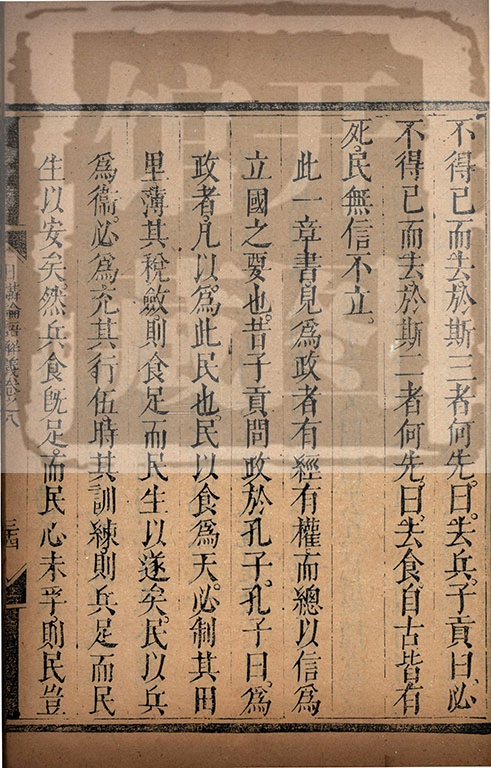 不得已而去於斯三者何先。曰。去兵。子貢曰。必
不得已而去。於斯二者何先。曰。去食。自古皆有
死。民無信不立。
此一章書。見為政者有經有權而總以信為
立國之要也。昔子貢問政於孔子。孔子曰。為
政者。凡以為此民也。民以食為天。必制其田
里薄其稅斂。則食足而民生以遂矣。民以兵
為衞。必為充其行伍。時其訓練。則兵足而民
生以安矣。然兵食旣足。而民心未孚。則民豈
日講四書解義卷之八
三四